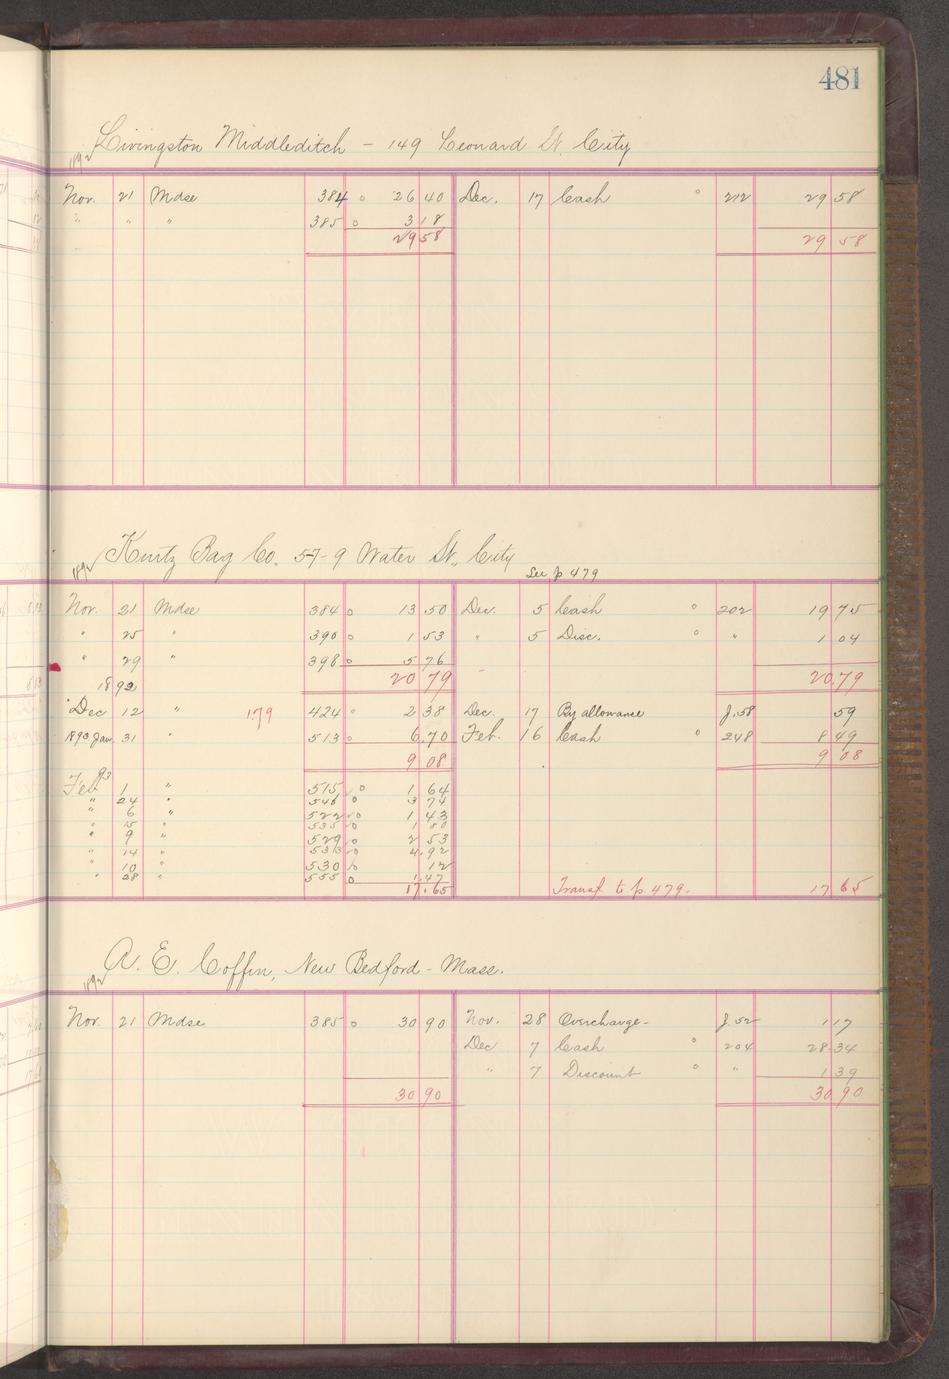 481
Livingston Middleditch - 149 Leonard St. City
1892
Nov. 21 Mdse 384 o 26 40 Dec. 17 Cash o 212 29 58
" " " 385 o 3 18
29 58 29 58
Kurtz Bag Co. 5-7-9 Water St., City
See p 479
1892
Nov. 21 Mdse 384 o 13 50 Dec. 5 Cash o 202 19 75
" 25 " 390 o 1 53 " 5 Disc. o " 1 04
" 29 " 398 o 5 76
20 79 20 79
1892
Dec 12 " 1.79 424 o 2 38 Dec. 17 By allowance J. 58 59
1893 Jan. 31 " 513 o 6.70 Feb. 16 Cash o 248 8 49
9 08 9 08
93
Feb 1 " 515 o 1 64
" 24 " 546 o 3 74
" 6 " 522 o 1 43
" 15 " 535 o 1 80
" 9 " 529 o 2 53
" 14 " 533 o 4.92
" 10 " 530 o 12
" 28 " 555 o 1.47
17.65 Transf. to p. 479. 17 65
A. E. Coffin, New Bedford - Mass.
1892
Nov. 21 Mdse 385 o 30 90 Nov. 28 Overcharge - J. 52 1 17
Dec 7 Cash o 204 28 34
" 7 Discount o " 1 39
30 90 30 90